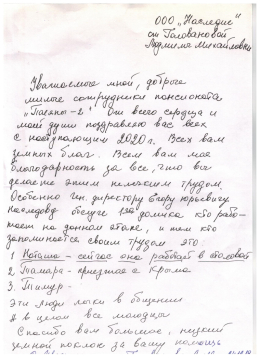 ООО "Наследие"
от Головановой
Людмилы Михайловны
Уважаемые мной, добрые
милые сотрудники пансионата
"Поляны-2" От всего сердца и
моей души поздравляю вас всех
с наступающим 2020г. Всех вам
земных благ. Всем вам моя
благодарность за все, что вы
делаете этим нелегким трудом.
Особенно ген. директору Егору Юрьевичу
кто рабо-
тает на данном этапе, и тем кто
запомнился своим трудом это:
1 Наташа - сейчас она работает в столовой
2 Тамара - приезжая с Крыма
3. Тимур -
Эти люди легки в общении
А в целом все молодцы
Спасибо вам большое, низкий
земной поклон за вашу помощь